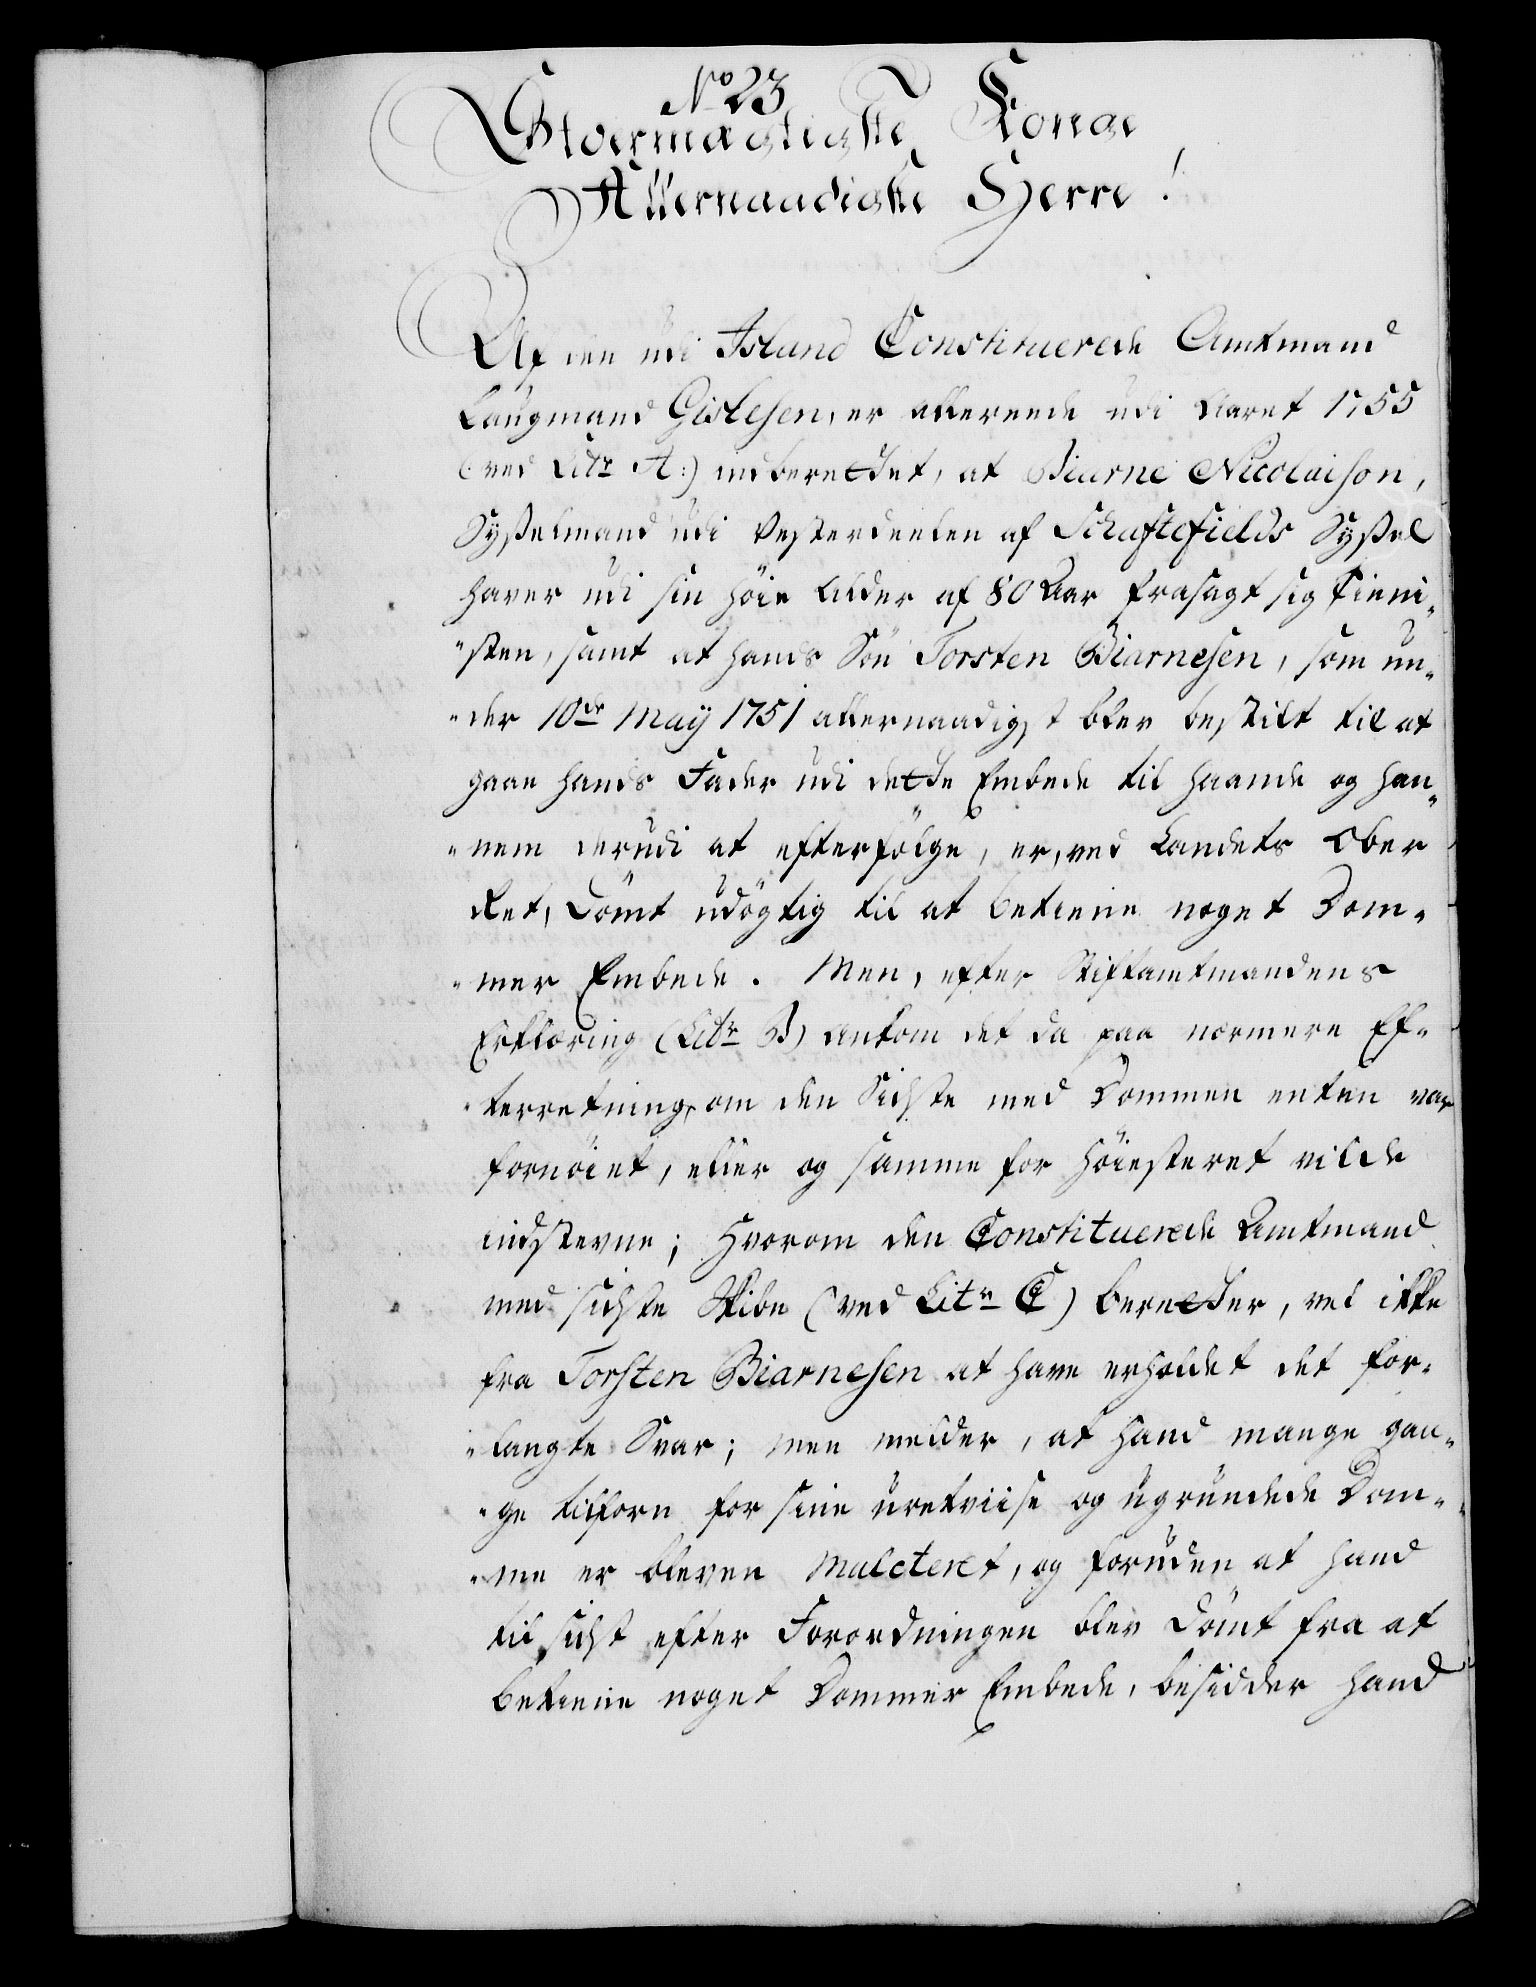 No 23
Stormægtigste Konge
Allernaadigste Herre!
Af den udi Island Constituerede Amtmand
Laugmand Gislesen, er allereede udi Aaret 1755
(:ved Litr A:) indberettet, at Biarne Nicolaison,
Sysselmand udi Vesterdeelen af Schaftefields Syssel
haver udi sin høie Alder af 80 Aar frasagt sig Tieni-
-sten, samt at hands Søn Torsten Biarnesen, som un-
-der 10de May 1751 allernaadigst blev bestilt til at
gaae hands Fader udi dette Embede til haande og han-
-nem derudi at efterfølge, er, ved Landets Ober
Ret, Dømt udøgtig til at betiene noget Dom-
-mer Embede. Men, efter Stiftamtmandens
Erklæring (Litr B) ankom det da paa nærmere Ef-
-terretning, om den Sidste med Dommen enten var
fornøiet, eller og samme for Høiesteret vilde
indstevne; Hvorom den Constituerede Amtmand
med sidste Skibe (ved Litr C) beretter, vel ikke
fra Torsten Biarnesen at have erholdet det for-
-langte Svar; men melder, at hand mange gan-
-ge tilforn for sine uretviise og ugrundede Dom-
-me er bleven Mulcteret, og foruden at hand
til sidst efter Forordningen blev Dømt fra at
betiene noget Dommer Embede, besidder hand